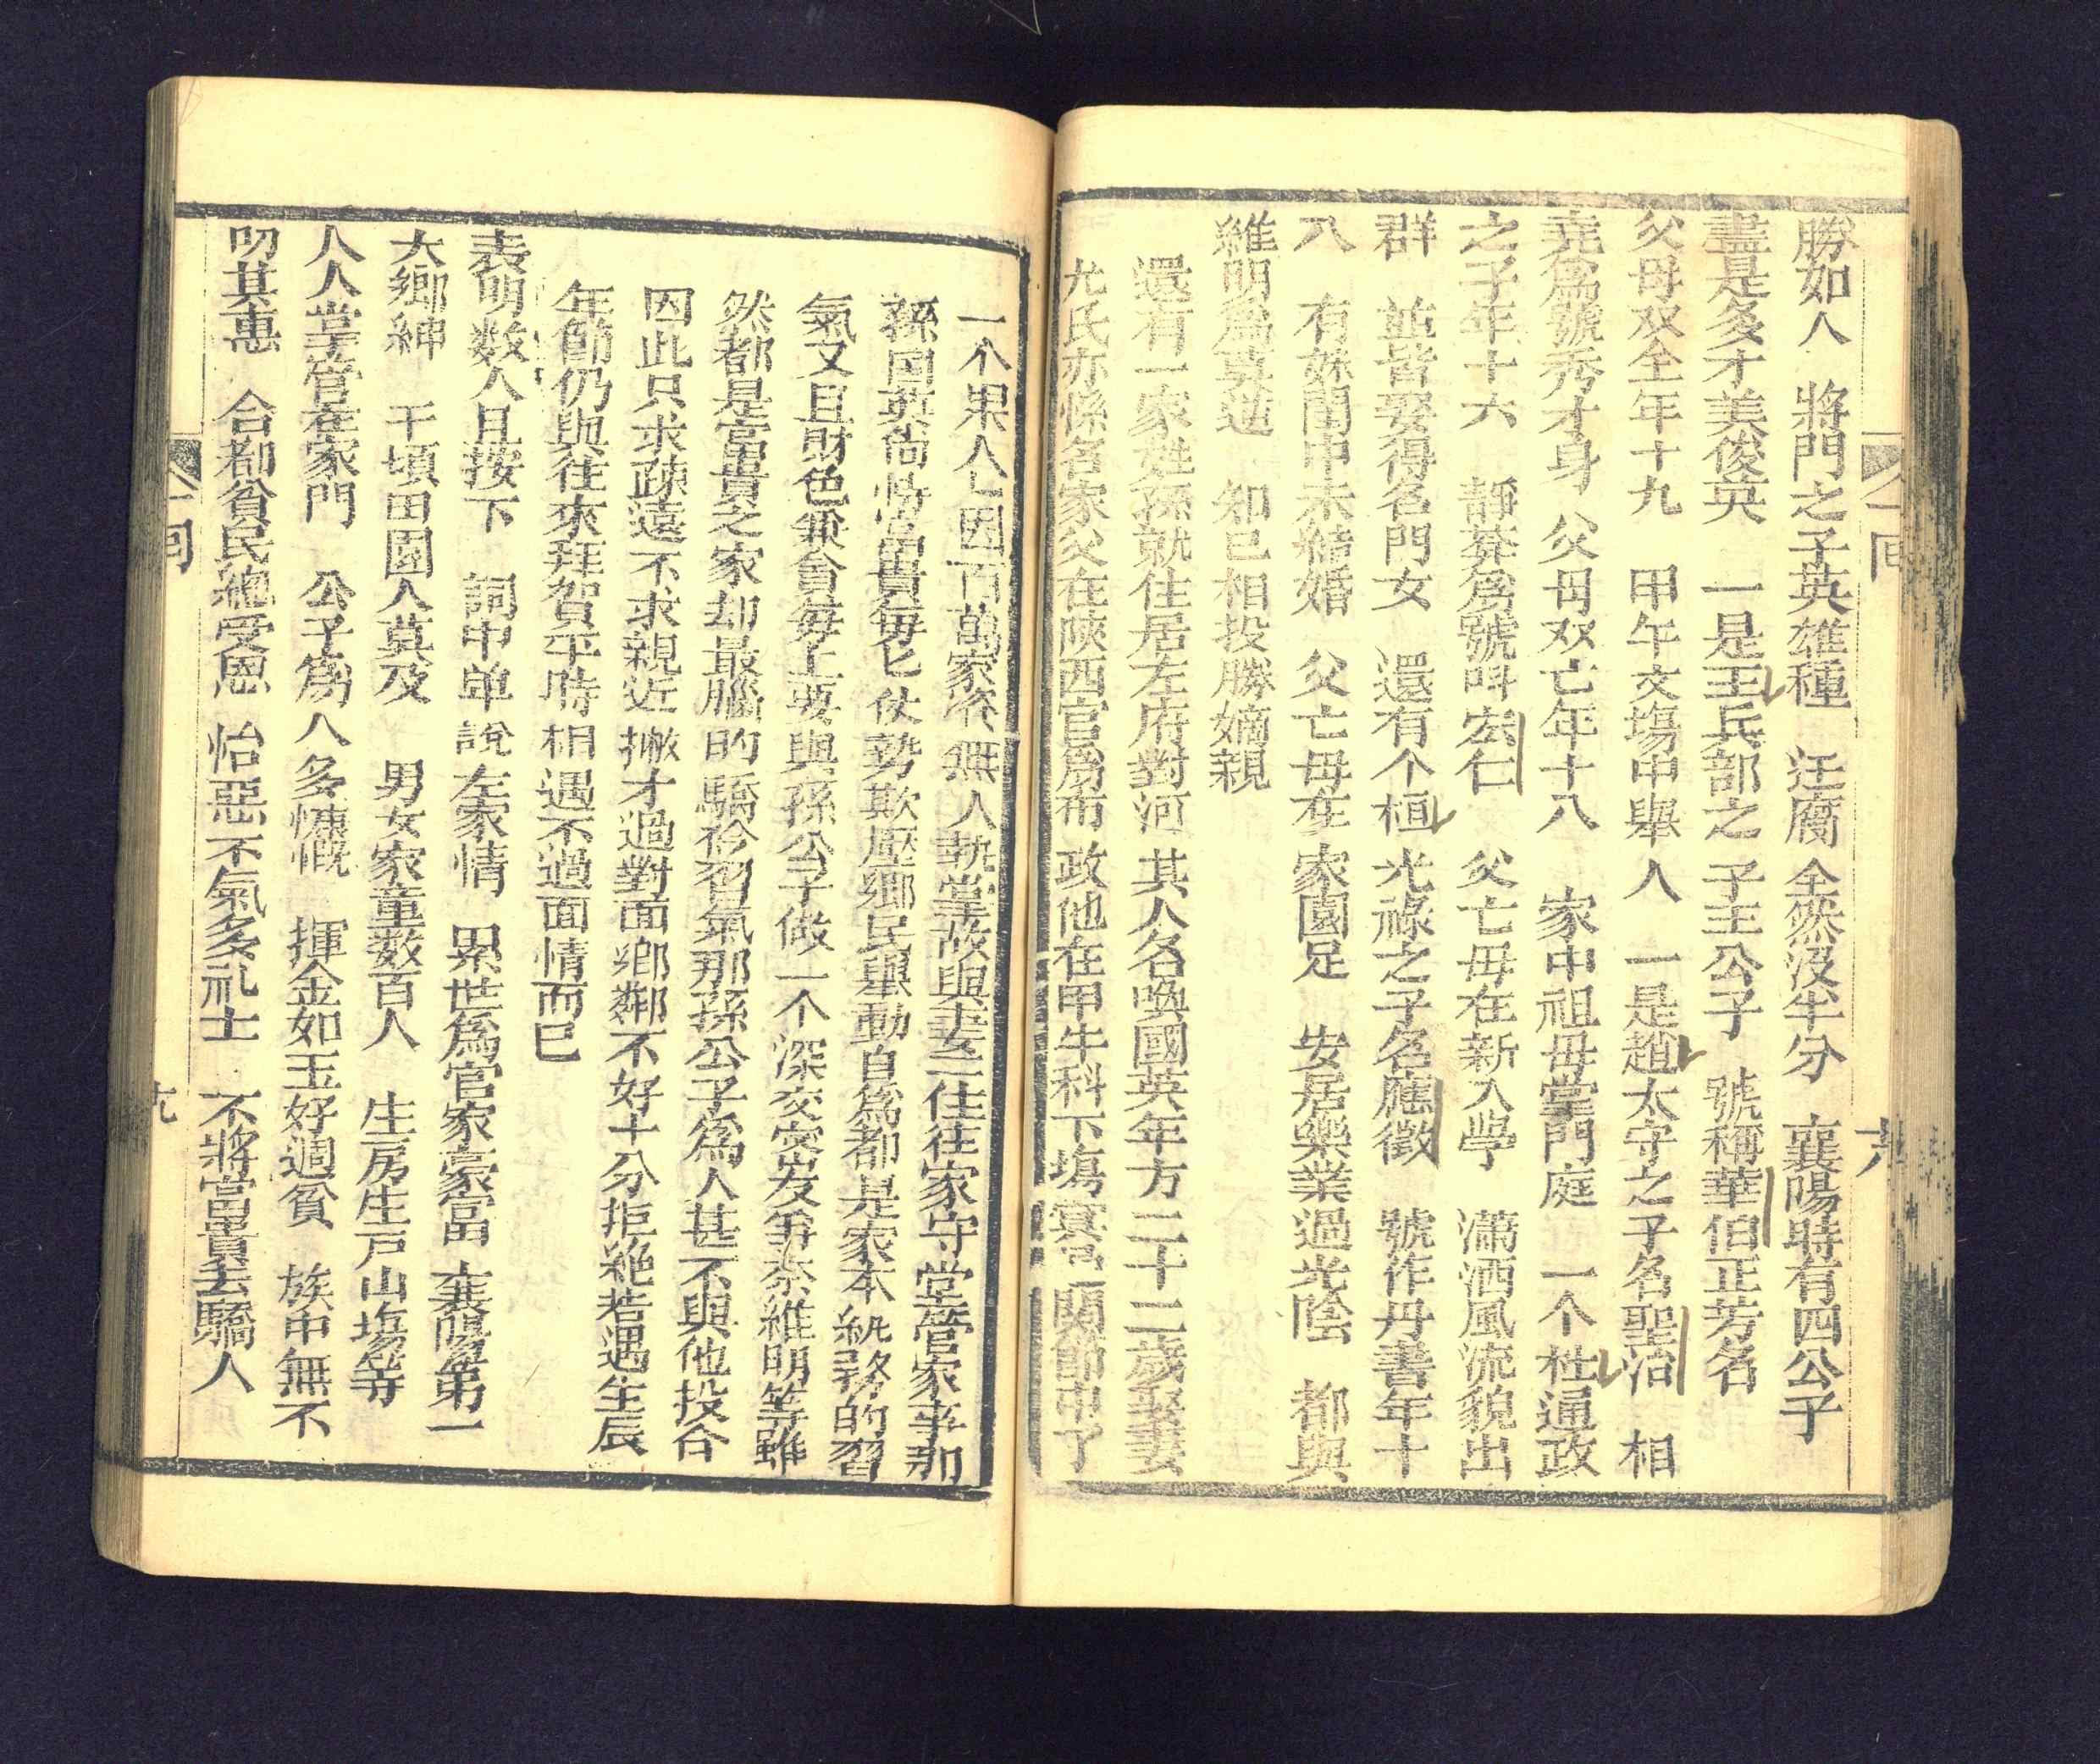 勝如人 將門之子英雄種 迂腐全然没半分 襄陽時有四公子
盡是多才美俊英 一是王兵部之子王公子 號稱華伯正芳名
父母双全年十九 甲午文塲中舉人 一是趙太守之子名聖治 相
堯為號秀才身 父母双亡年十八 家中祖母掌門庭 一个杜通政
之子年十六 靜莽為號呌宏仁 父亡母在新入學 瀟洒風流貌出
群 並皆娶得名門女 還有个桓光祿之子名應徵 號作丹書年十
八 有妹閨中未結婚 父亡母在家園足 安居樂業過光陰 都與
維明為莫逆 知已相投勝嫡親
還有一家姓孫就住居左府對河其人名喚國英年方二十二歲娶妻
尤氏亦係名家父在陝西官為布政他在甲午科下塲買関節中了
一个果人匕因百萬家衆無人執掌故與妻二住徃家守堂管家事那
孫国英尚恃富貴每匕仗勢欺壓鄉民舉動自為都是家本紈袴的習
氣又且財色兼貪每上要與孫公子做一个深交密友爭奈維明等雖
然都是富貴之家却最腦的驕矜習氣那孫公子為人甚不與他投合
因此只求疎遠不求親近撇才過對面鄉鄰不好十分拒絶若遇生辰
年節仍與往來拜賀平時相遇不過面情而已
表明数人且按下 詞中單說左家情 累世為官家豪富 襄陽第一
大鄉紳 千頃田園人莫及 男女家童数百人 生房生戸山塲等
人人掌管在家門 公子為人多慷慨 揮金如玉好週貧 族中無不
叨其惠 合都貧民總受恩 怡惡不氣多礼士 不將富貴去驕人
一囘